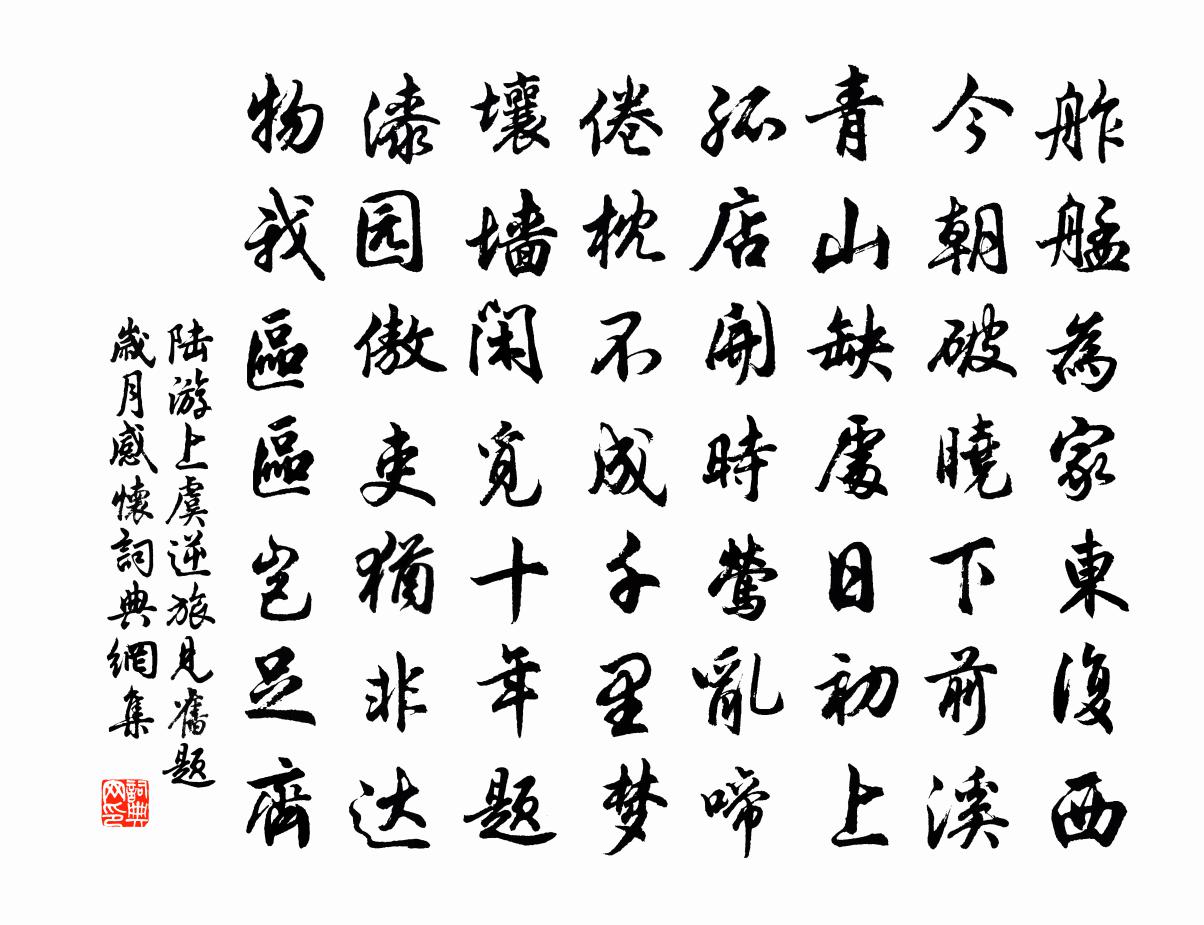 舴艋為家東復西
今朝破曉下前溪
青山缺處日初上
孤店開時鶯亂啼
倦枕不成千里梦
壞墙閑覓十年題
漆园傲吏猶非达
物我區區岂足齊
陆游上虞逆旅見舊題
歲月感懷詞典網集
詞典网印